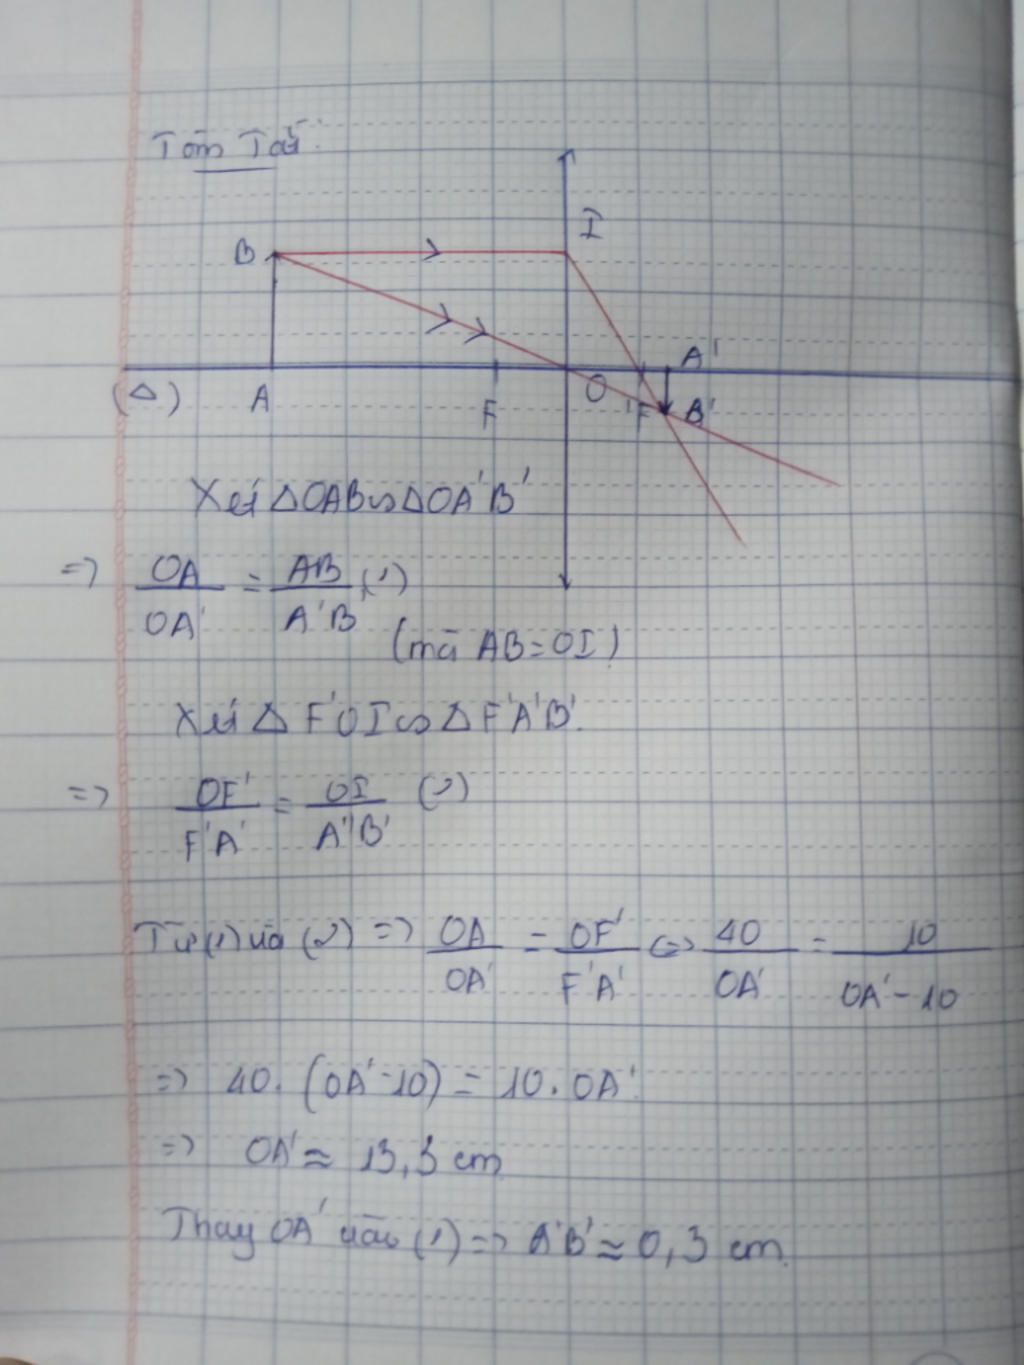 Tóm Tắt:
I
B
A'
(Δ) A F O 'F B'
Xét ΔOAB ∽ ΔOA'B'
=> OA/OA' = AB/A'B (1)
(mà AB=OI)
Xét Δ F'OI ∽ Δ F'A'B'.
=> OF'/F'A' = OI/A'B' (2)
Từ (1) và (2) => OA/OA' = OF'/F'A' <=> 40/OA' = 10/OA'-10
=> 40. (OA'-10) = 10. OA'
=> OA' ≈ 13,3 cm
Thay OA' vào (1) => A'B' ≈ 0,3 cm.